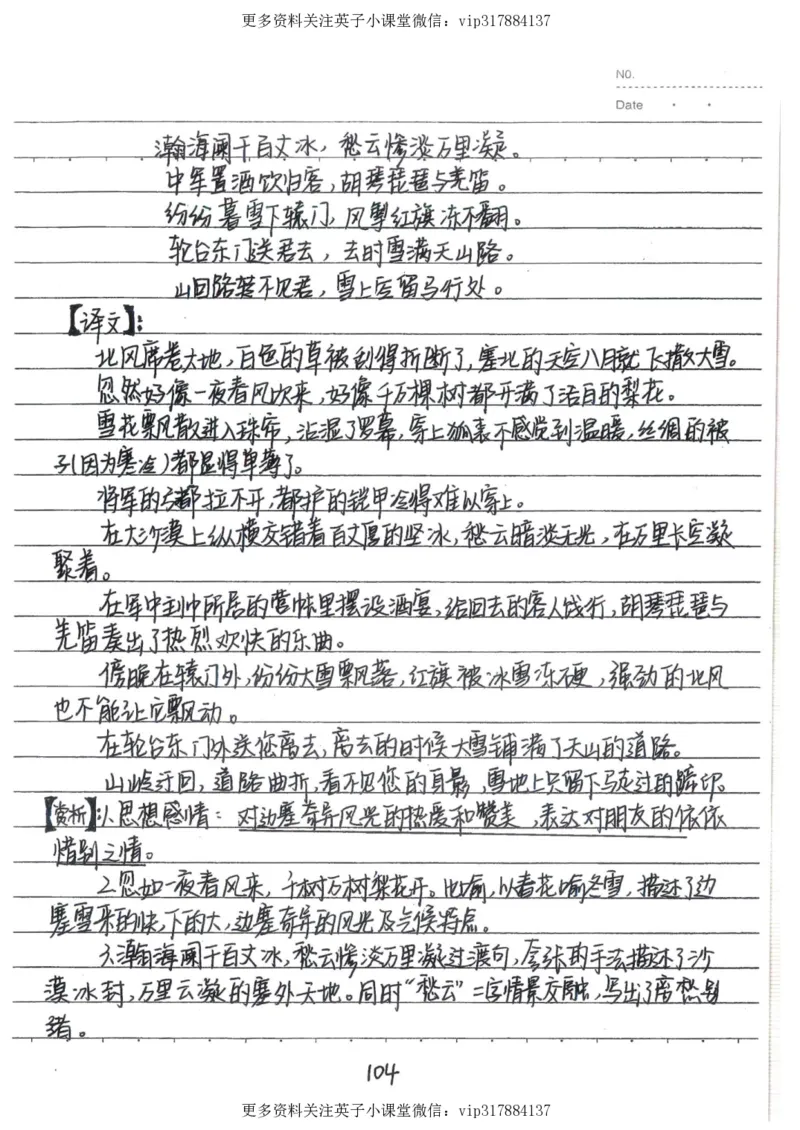 更多资料关注英子小课堂微信：vip317884137
NO.
Date
瀚海阑干百丈冰，愁云惨淡万里凝。
中军置酒饮归客，胡琴琵琶与羌笛。
纷纷暮雪下辕门，风掣红旗冻不翻。
轮台东门送君去，去时雪满天山路。
山回路转不见君，雪上空留马行处。
【译文】：
北风席卷大地，白色的草被刮得折断了，塞北的天空八月就飞撒大雪。
忽然好像一夜春风吹来，好像千万棵树都开满了洁白的梨花。
雪花飘散进入珠帘，沾湿了罗幕，穿上狐裘不感觉到温暖，丝绸的被
子（因为寒冷）都显得单薄了。
将军的弓都拉不开，都护的铠甲冷得难以穿上。
在大沙漠上纵横交错着百丈厚的坚冰，愁云暗淡无光，在万里长空凝
聚着。
在军中主帅所居的营帐里摆设酒宴，给回去的客人饯行，胡琴琵琶与
羌笛奏出了热烈欢快的乐曲。
傍晚在辕门外，纷纷大雪飘落，红旗被冰雪冻硬，强劲的北风
也不能让它飘动。
在轮台东门外送您离去，离去的时候大雪铺满了天山的道路。
山岭迂回，道路曲折，看不见您的身影，雪地上只留下马走过的蹄印。
【赏析】：1.思想感情：对边塞奇异风光的热爱和赞美，表达对朋友的依依
惜别之情。
2.忽如一夜春风来，千树万树梨花开。比喻，以春花喻冬雪，描述了边
塞雪来的快，下的大，边塞奇异的风光及气候特点。
3.瀚海阑干百丈冰，愁云惨淡万里凝过渡句，夸张的手法描述了沙
漠冰封，万里云凝的塞外天地。同时“愁云”二字情景交融，写出了离愁别
绪。
104
更多资料关注英子小课堂微信：vip317884137